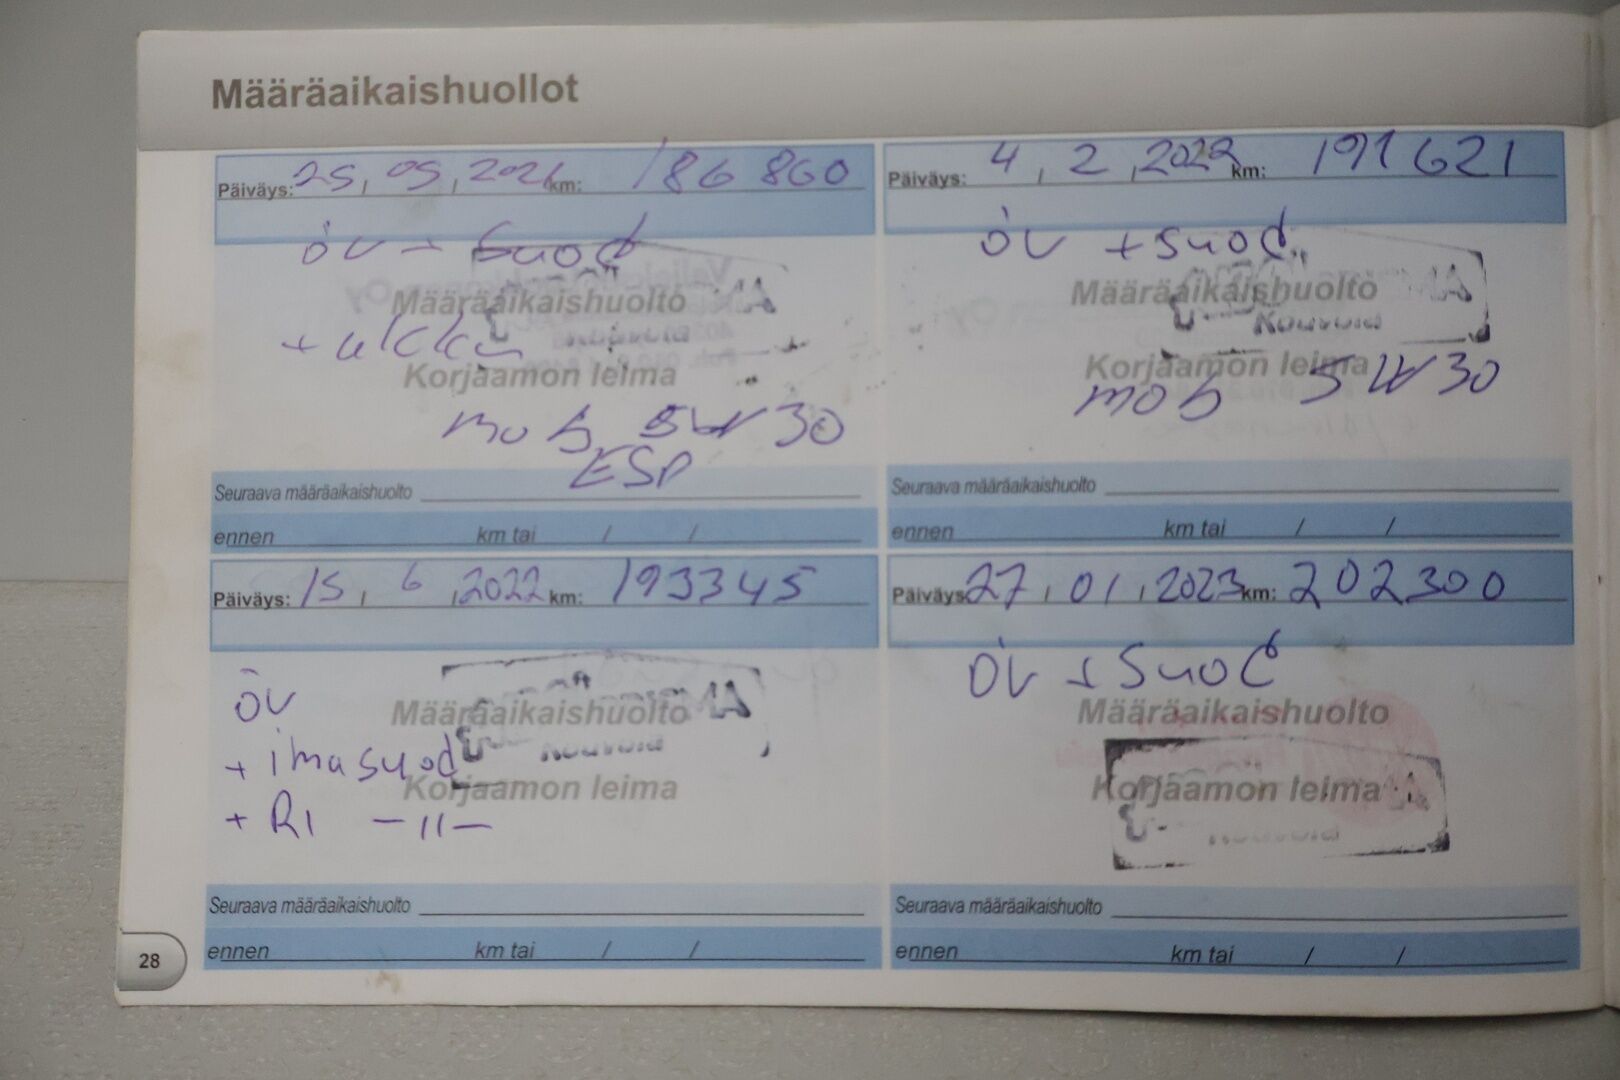 Määräaikaishuollot
Päiväys: 25, 05, 2021 km: 186 860
öv + suod
Määräaikaishuolto
Kouvola
Korjaamon leima
mob 5W30
ESP
Seuraava määräaikaishuolto
ennen km tai / /
Päiväys: 4, 2, 2022 km: 191621
öv + suod
Määräaikaishuolto
Kouvola
Korjaamon leima
mob 5W30
Seuraava määräaikaishuolto
ennen km tai / /
Päiväys: 15, 6, 2022 km: 193345
öv
Määräaikaishuolto
Kouvola
+ imasuod
Korjaamon leima
+ RI -11-
Seuraava määräaikaishuolto
ennen km tai / /
Päiväys: 27, 01, 2023 km: 202300
öv + suod
Määräaikaishuolto
Korjaamon leima
Kouvola
Seuraava määräaikaishuolto
ennen km tai / /
28